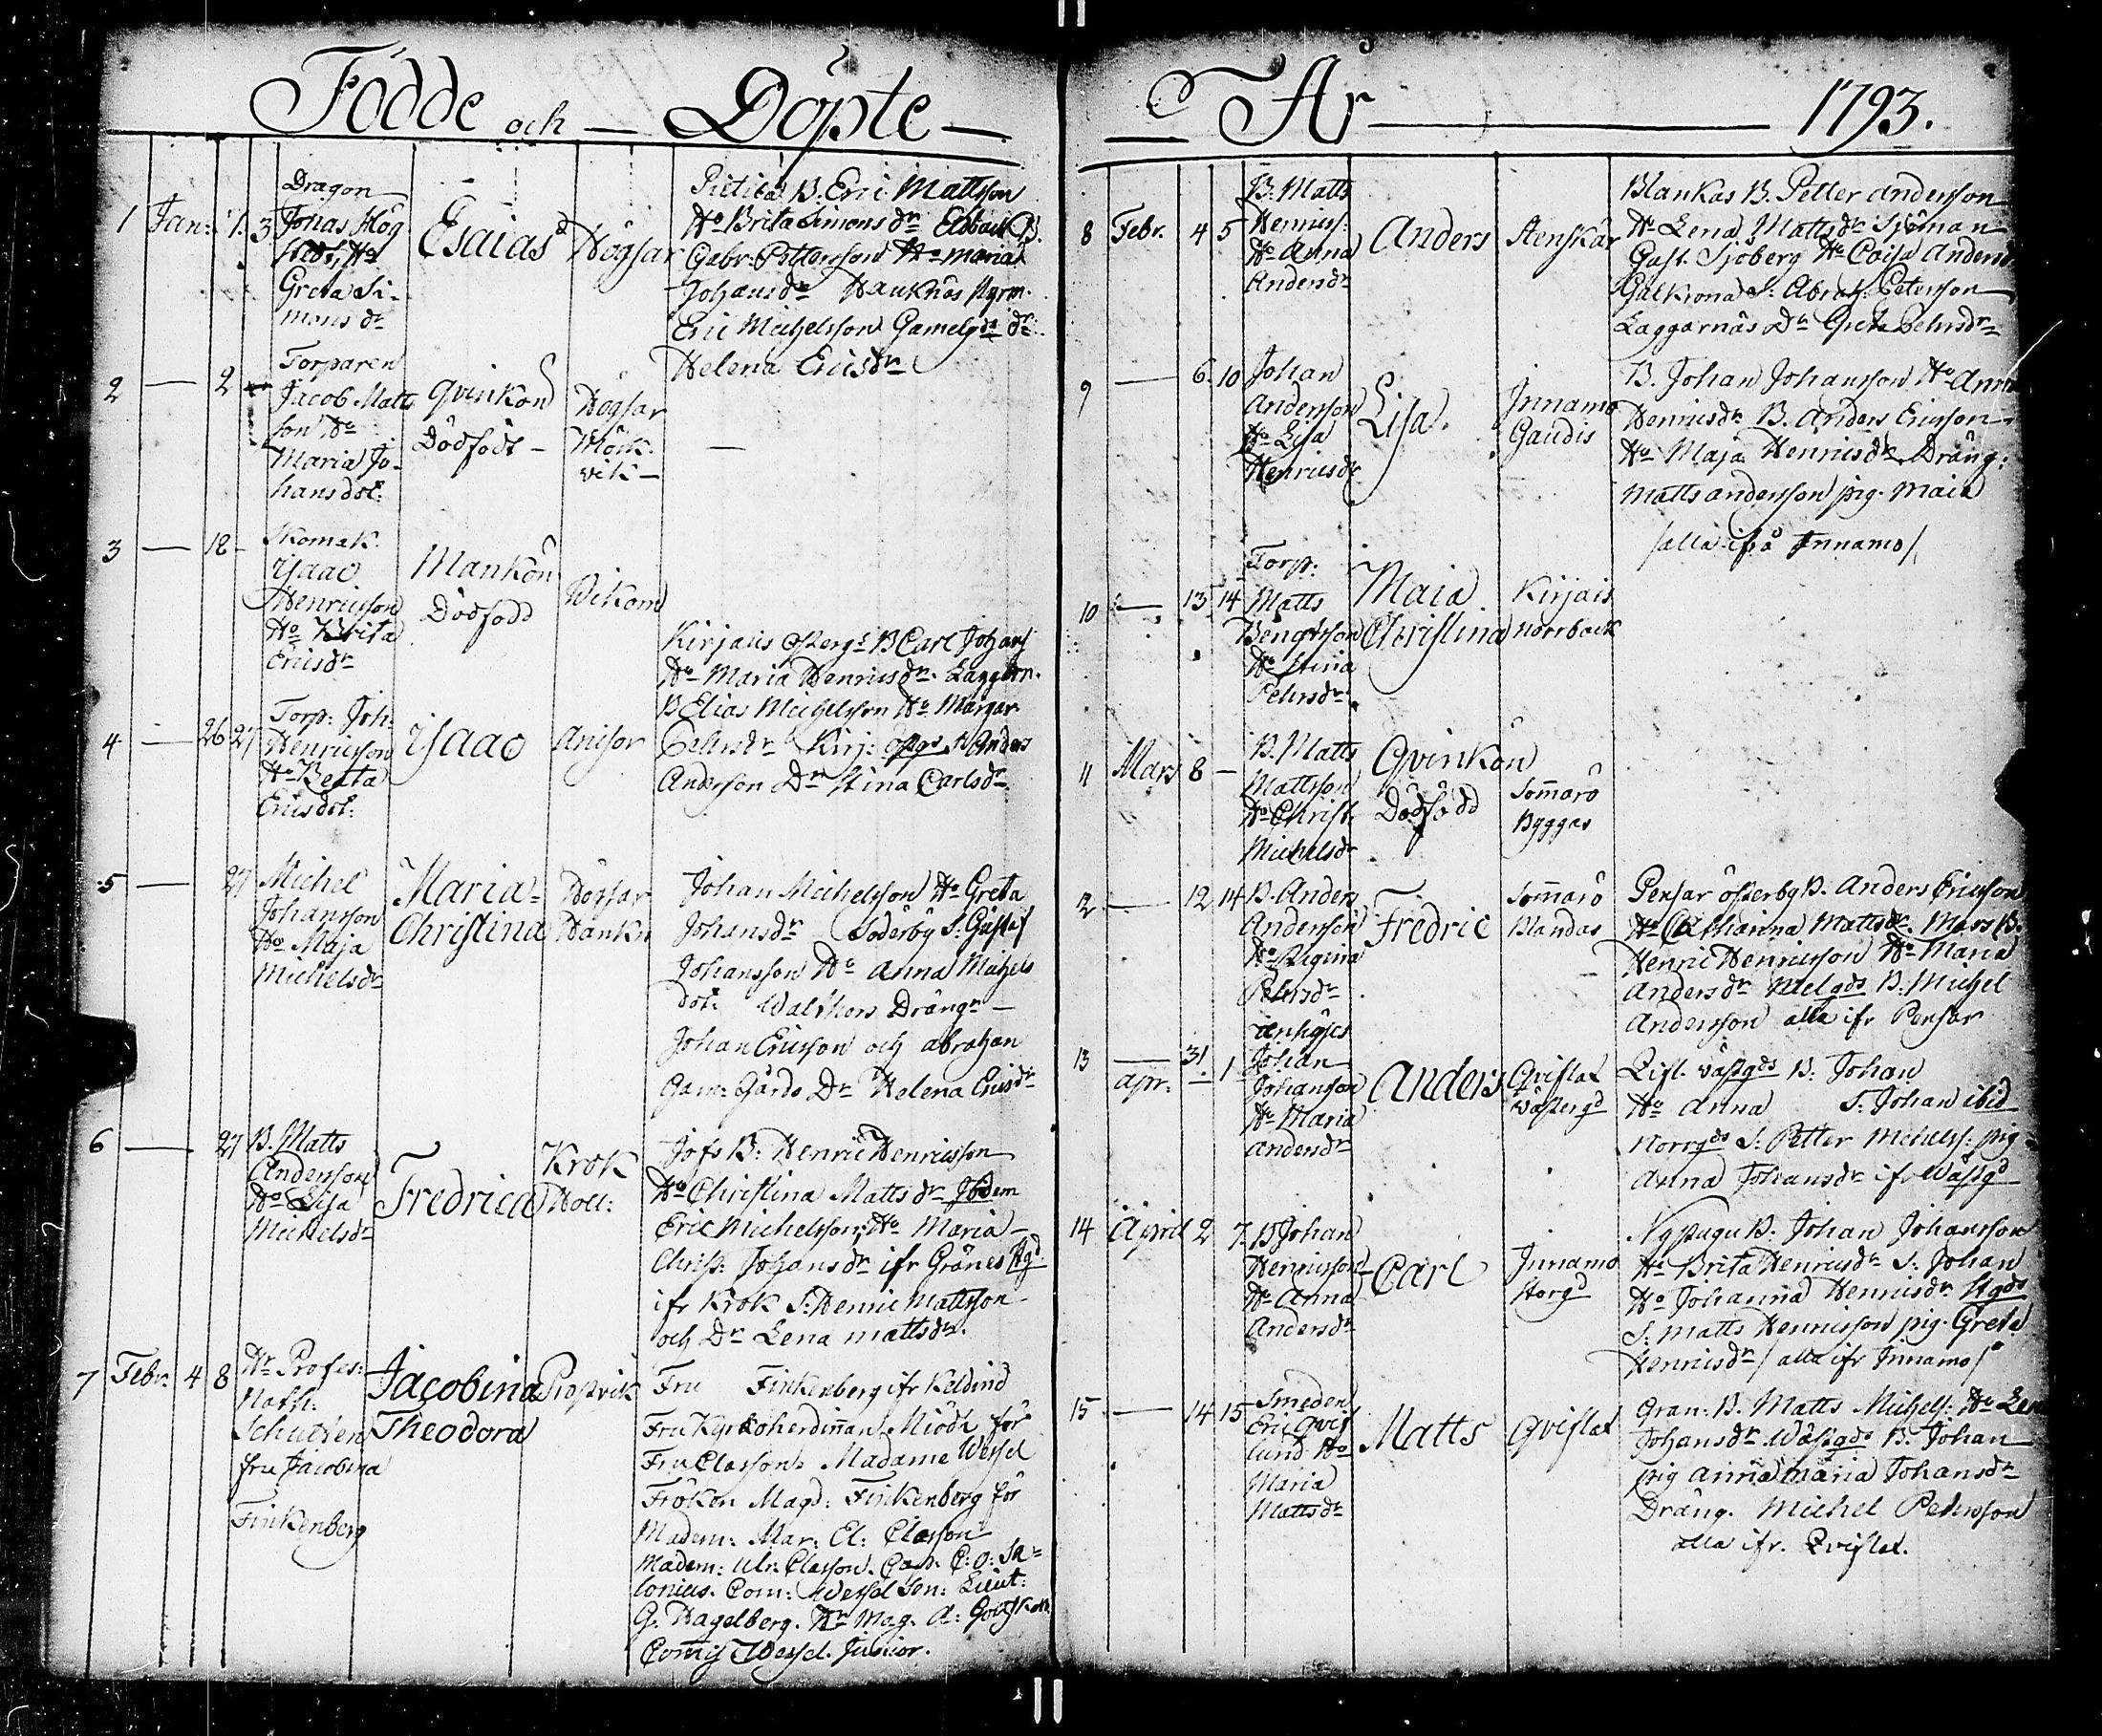 Födde och — Döpte —
1 Jan: 1. 3
Dragon
Jonas Hög
stedt, Ho
Greta Si-
mons dr
Esaias
Högsar
B. Eric Mattsson
Ho Brita Simons dr B.
Gabr: Pettersson Ho Maria
Johansdr Hauknäs styrm.
Eric Michelsson Gamelgds dr:
Helena Ericsdr
2 — 2
Torparen
Jacob Matts
son Ho
Maria Jo-
hansdot:
Qvinkön
Dödfödt —
Högsar
Mörk-
vik —
—
3 — 18 -
Skomak.
Isaac
Henricsson
Ho Brita
Ericsdr
Mankön
Dödfödd
Vikom
4 — 26 27
Torp: Joh:
Henricsson
Ho Beata
Ericsdot:
Isaac
Anisor
Kirjais österg: B Carl Johans
Ho Maria Henricsdr. Laggarn.
B Elias Michelsson Ho Margar.
Pehrsdr Kirj: östgs S Anders
Anderson Dr Stina Carlsdr
5 — 27
Michel
Johansson
Ho Maja
Michelsdr
Maria-
Christina
Högsar
Haukn
Johan Michelsson Ho Greta
Johansdr Söderby S: Gustaf
Johansson Ho Anna Michels
dot: Walthors Drängr —
Johan Ericsson och Abraham
Gam: Gårds Dr Helena Ericsdr
6 — 27
B. Matts
Andersson
Ho Lisa
Michelsdr
Fredrica
Krok
Holl:
Jofs B: Henric Henricsson
Ho Christina Mattsdr Ibidem
Eric Michelsson, Ho Maria —
Christ: Johansdr ifr Grånes
ifr Krok S: Henric Mattsson
och Dr Lena Mattsdr.
7 Febr: 4 8
Hr Profes:
Nath:
Schulten
fru Jacobina
Finkenberg
Jacobina
Theodora
Prostvik
Fru Finkenberg ifr Keldinö
Fru Kyrkoherdinnan Miödh för
Fru Classon. Madame Wessel
Fröken Magd: Finkenberg för
Madem: Mar: El: Classon
Madem: Ulr: Classon. Cap: C: O: Sa-
lonius. Com: Wessel Sen: Lieut:
G. Hagelberg. Hr Mag. A:
Comis Wessel. Junior.
— År — 1793.
8 Febr. 4 5
B: Matts
Henrics:
Ho Anna
Andersdr
Anders
Aenskär
Blankas B. Petter Andersson
Ho Lena Mattsdr Sjöman
Gust. Sjöberg Ho Caisa Anders
Galkrona S: Abrah: Peterson
Laggarnäs Dr Greta Pehrsdr
9 — 6. 10
Johan
Andersson
Ho Lisa
Henricsdr
Lisa.
Innamo
Gaudis
B. Johan Johansson Ho Anna
Henricsdr B. Anders Ericsson
Ho Maja Henricsdr Dräng:
Matts Andersson pig. Maia
/alla ifrå Innamo/
10 — 13 14
Torp:
Matts
Bengtsson
Ho Stina
Pehrsdr
Maia
Christina
Kirjais
Norrback
11 Mars 8 —
B. Matts
Mattsson
Ho Christ.
Michelsdr
Qvinkön
Dödfödd
Sommarö
Byggas
12 — 12 14
B. Anders
Anderson
Ho Regina
Pehrsdr
Fredric
Sommarö
Blandas
Pensar österby B. Anders Ericsson
Ho Catharina Mattsdr. Mass B.
Henric Henricsson Ho Maria
Andersdr Melgds B. Michel
Andersson alla ifr Pensar
13 — 31
apr: 1
Inhyses
Johan
Johanson
Ho Maria
Andersdr
Anders
Qviflax
Wästergd
Qvifl. Wästgds B: Johan
Ho Anna S: Johan ibid
Norrgds S: Petter Michelss: pig
Anna Johansdr ifr Wästgd
14 April 2 7
B Johan
Henricsson
Ho Anna
Andersdr
Carl
Innamo
Storgd
Nystugu B: Johan Johansson
Ho Brita Henricsdr S: Johan
Ho Johanna Henricsdr Stgds
S: Matts Henricsson pig. Greta
Henricsdr / alla ifr Innamo /
15 — 14 15
Smeden
Eric Qvist
lund Ho
Maria
Mattsdr
Matts
Qviflax
Gran: B. Matts Michels: Ho Lena
Johansdr Wästgds B. Johan
pig Anna Maria Johansdr
Dräng. Michel Peterson
alla ifr. Qviflax.